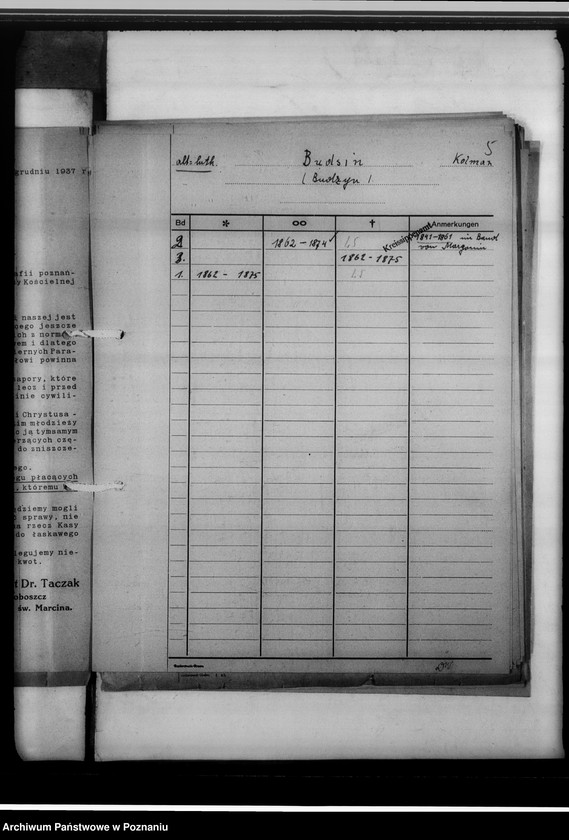 grudniu 1937 r.
afii poznań-
y Kościelnej
naszej jest
cego jeszcze
ch z norm
em i dlatego
iernych Para-
łowi powinna
apory, które
lecz i przed
inie cywili-
i Chrystusa -
im młodzieży
o ją tymsamym
rzących czę-
do zniszcze-
ego.
gu płacących
, któremu
ędziemy mogli
sprawy, nie
a rzecz Kasy
do łaskawego
legujemy nie-
kwot.
Dr. Taczak
oboszcz
św. Marcina.
5
alt-luth. Budsin Kolmar
(Budzyn).
Bd * oo † Anmerkungen
2. 1862 - 1874 LS Kreissippenamt 1841-1861 im Band
von Margonin
3. 1862 - 1875
1. 1862 - 1875 LS
Archiwum Państwowe w Poznaniu